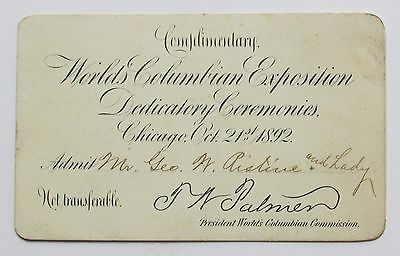 Complimentary.
World's Columbian Exposition
Dedicatory Ceremonies.
Chicago, Oct. 21st 1892.
Admit Mr. Geo. W. Ristine and Lady
Not transferable. T W Palmer
President World's Columbian Commission.